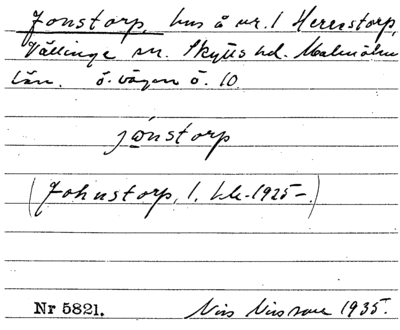 Jonstorp, hus å nr. 1 Herrestorp,
Vellinge sn. Skytts hd. Malmöhus
län. ö. vägen ö. 10
jónstorp
(Johnstorp, 1. 1925-.)
Nr 5821. Nils Nilsson 1935.